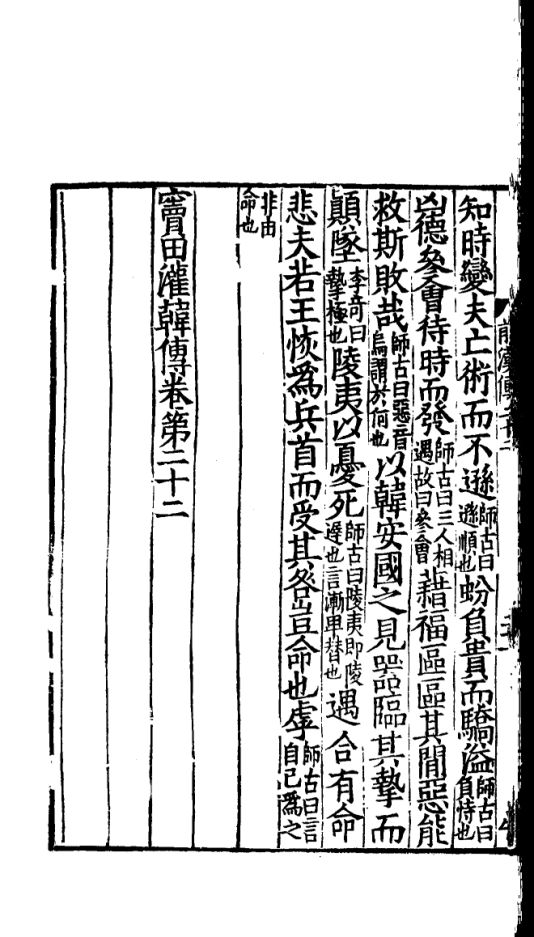 知時變夫亡術而不遜師古曰遜順也蚡負貴而驕溢師古曰負恃也
凶德參會待時而發師古曰三人相遇故曰參會藉福區區其閒惡能
救斯敗哉師古曰惡音烏謂於何也以韓安國之見器臨其摯而
顚墜李奇曰摯極也陵夷以憂死師古曰陵夷即陵遟也言漸卑替也遇合有命
悲夫若王恢爲兵首而受其咎豈命也虖師古曰言自己爲之
非由命也
竇田灌韓傳卷第二十二